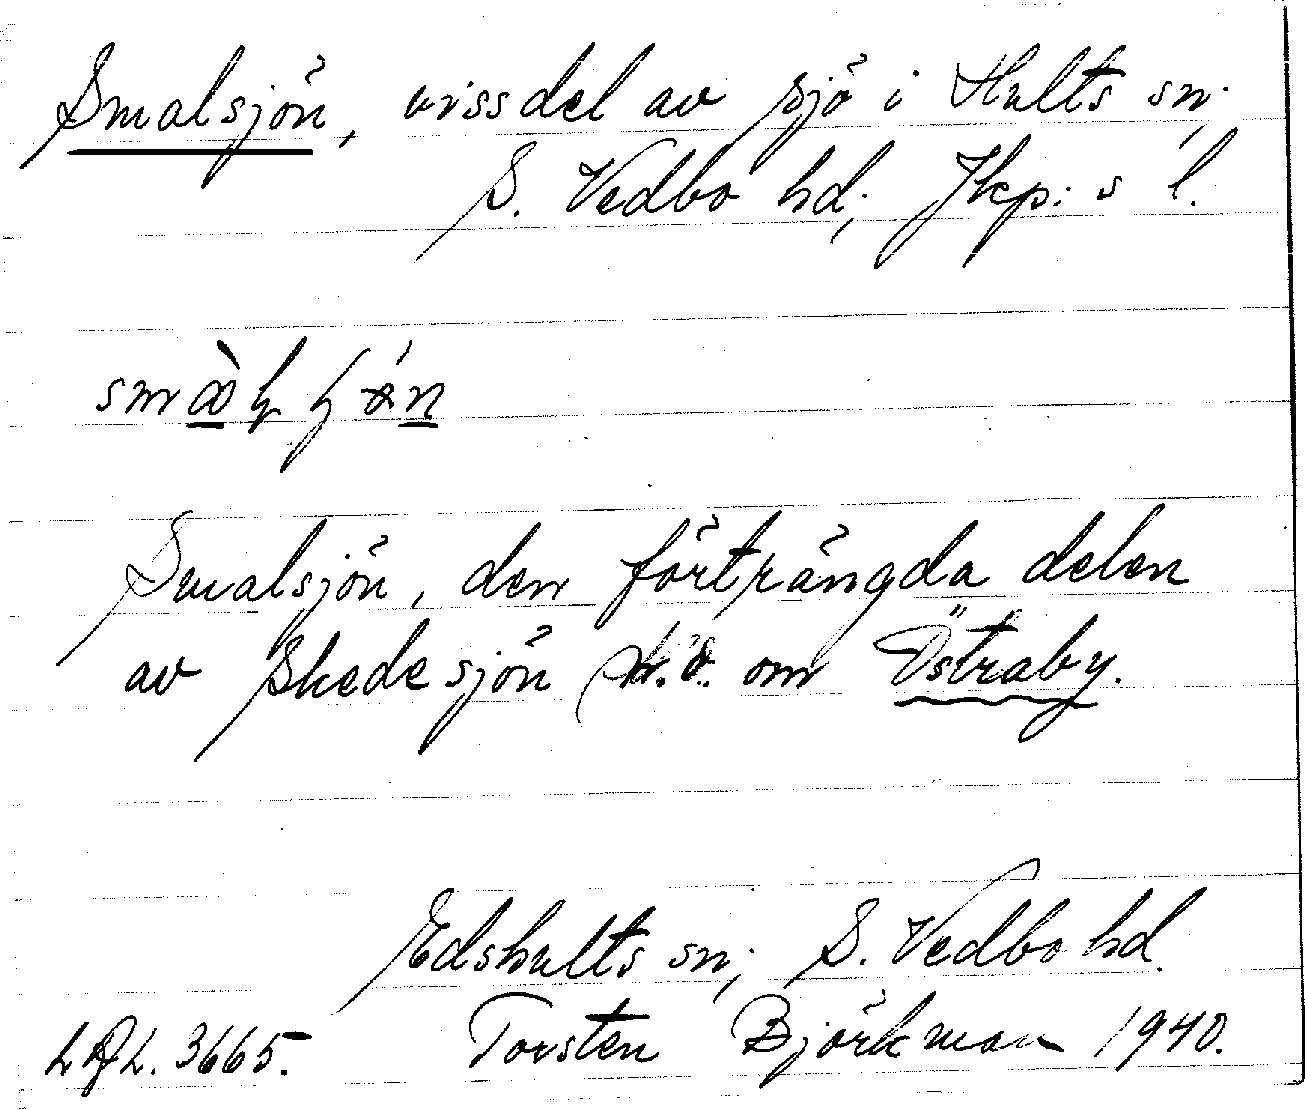 Smalsjön, vissdel av sjö i Hults sn;
S. Vedbo hd; Jkp:s l.
Smalsjön, den förträngda delen
av Skedesjön n.v. om Östraby.
Edshults sn; S. Vedbo hd.
Torsten Björkman 1940.
LAL. 3665.